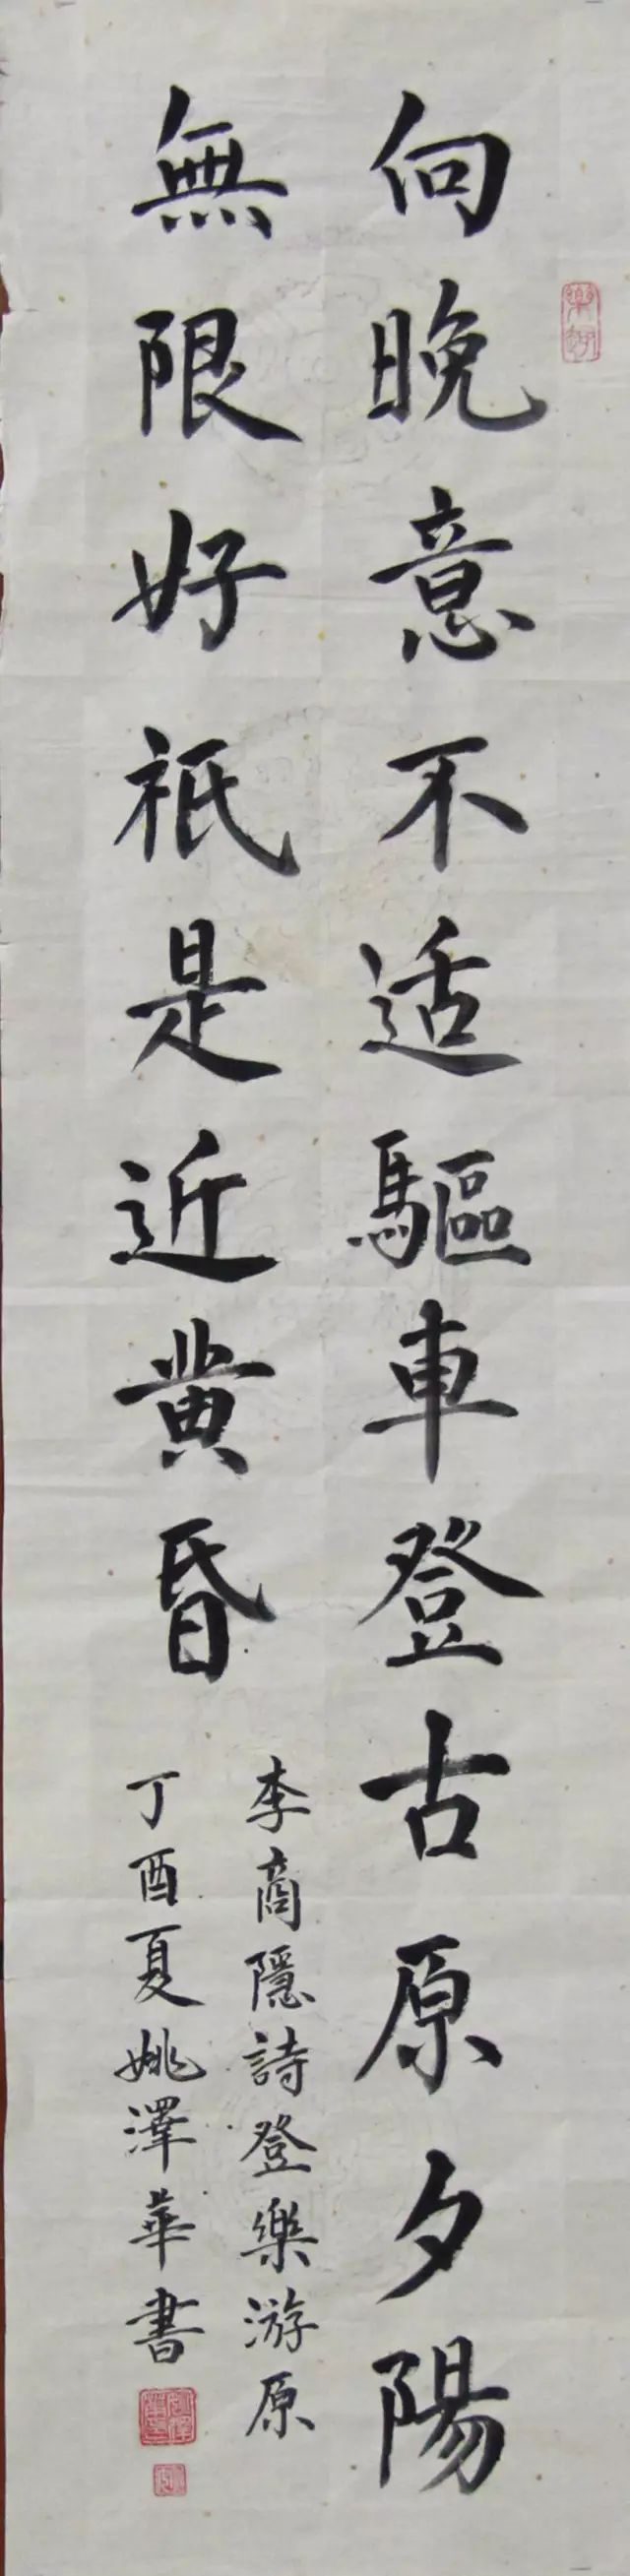 向晚意不适驅車登古原夕陽
無限好祇是近黄昏
李商隱詩登樂游原
丁酉夏姚澤華書